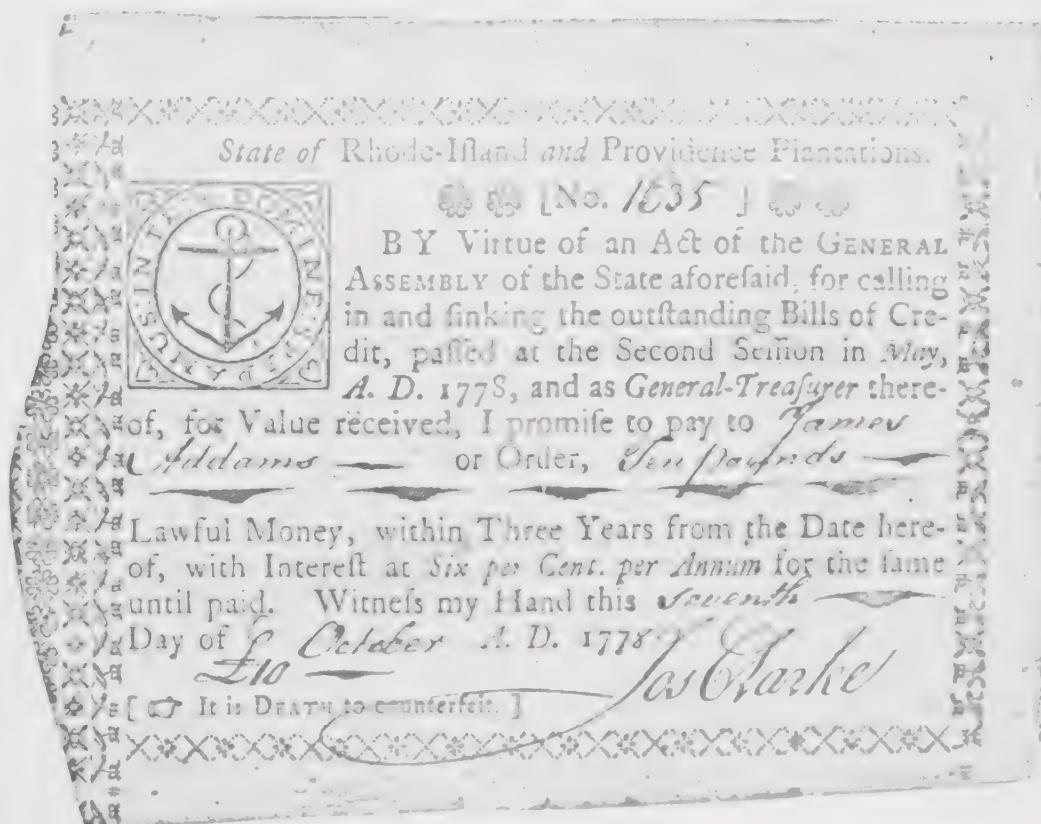 State of Rhode-Iſland and Providence Plantations.
[No. 1635 ]
BY Virtue of an Act of the GENERAL
ASSEMBLY of the State aforeſaid, for calling
in and ſinking the outſtanding Bills of Cre-
dit, paſſed at the Second Seſſion in May,
A. D. 1778, and as General-Treaſurer there-
of, for Value received, I promiſe to pay to James
Addams or Order, Ten pounds
Lawful Money, within Three Years from the Date here-
of, with Intereſt at Six per Cent. per Annum for the ſame
until paid. Witneſs my Hand this Seventh
Day of October A. D. 1778
£10 Jos Clarke
[ ☞ It is DEATH to counterfeit. ]
IN TE DOMINE SPERAMUS